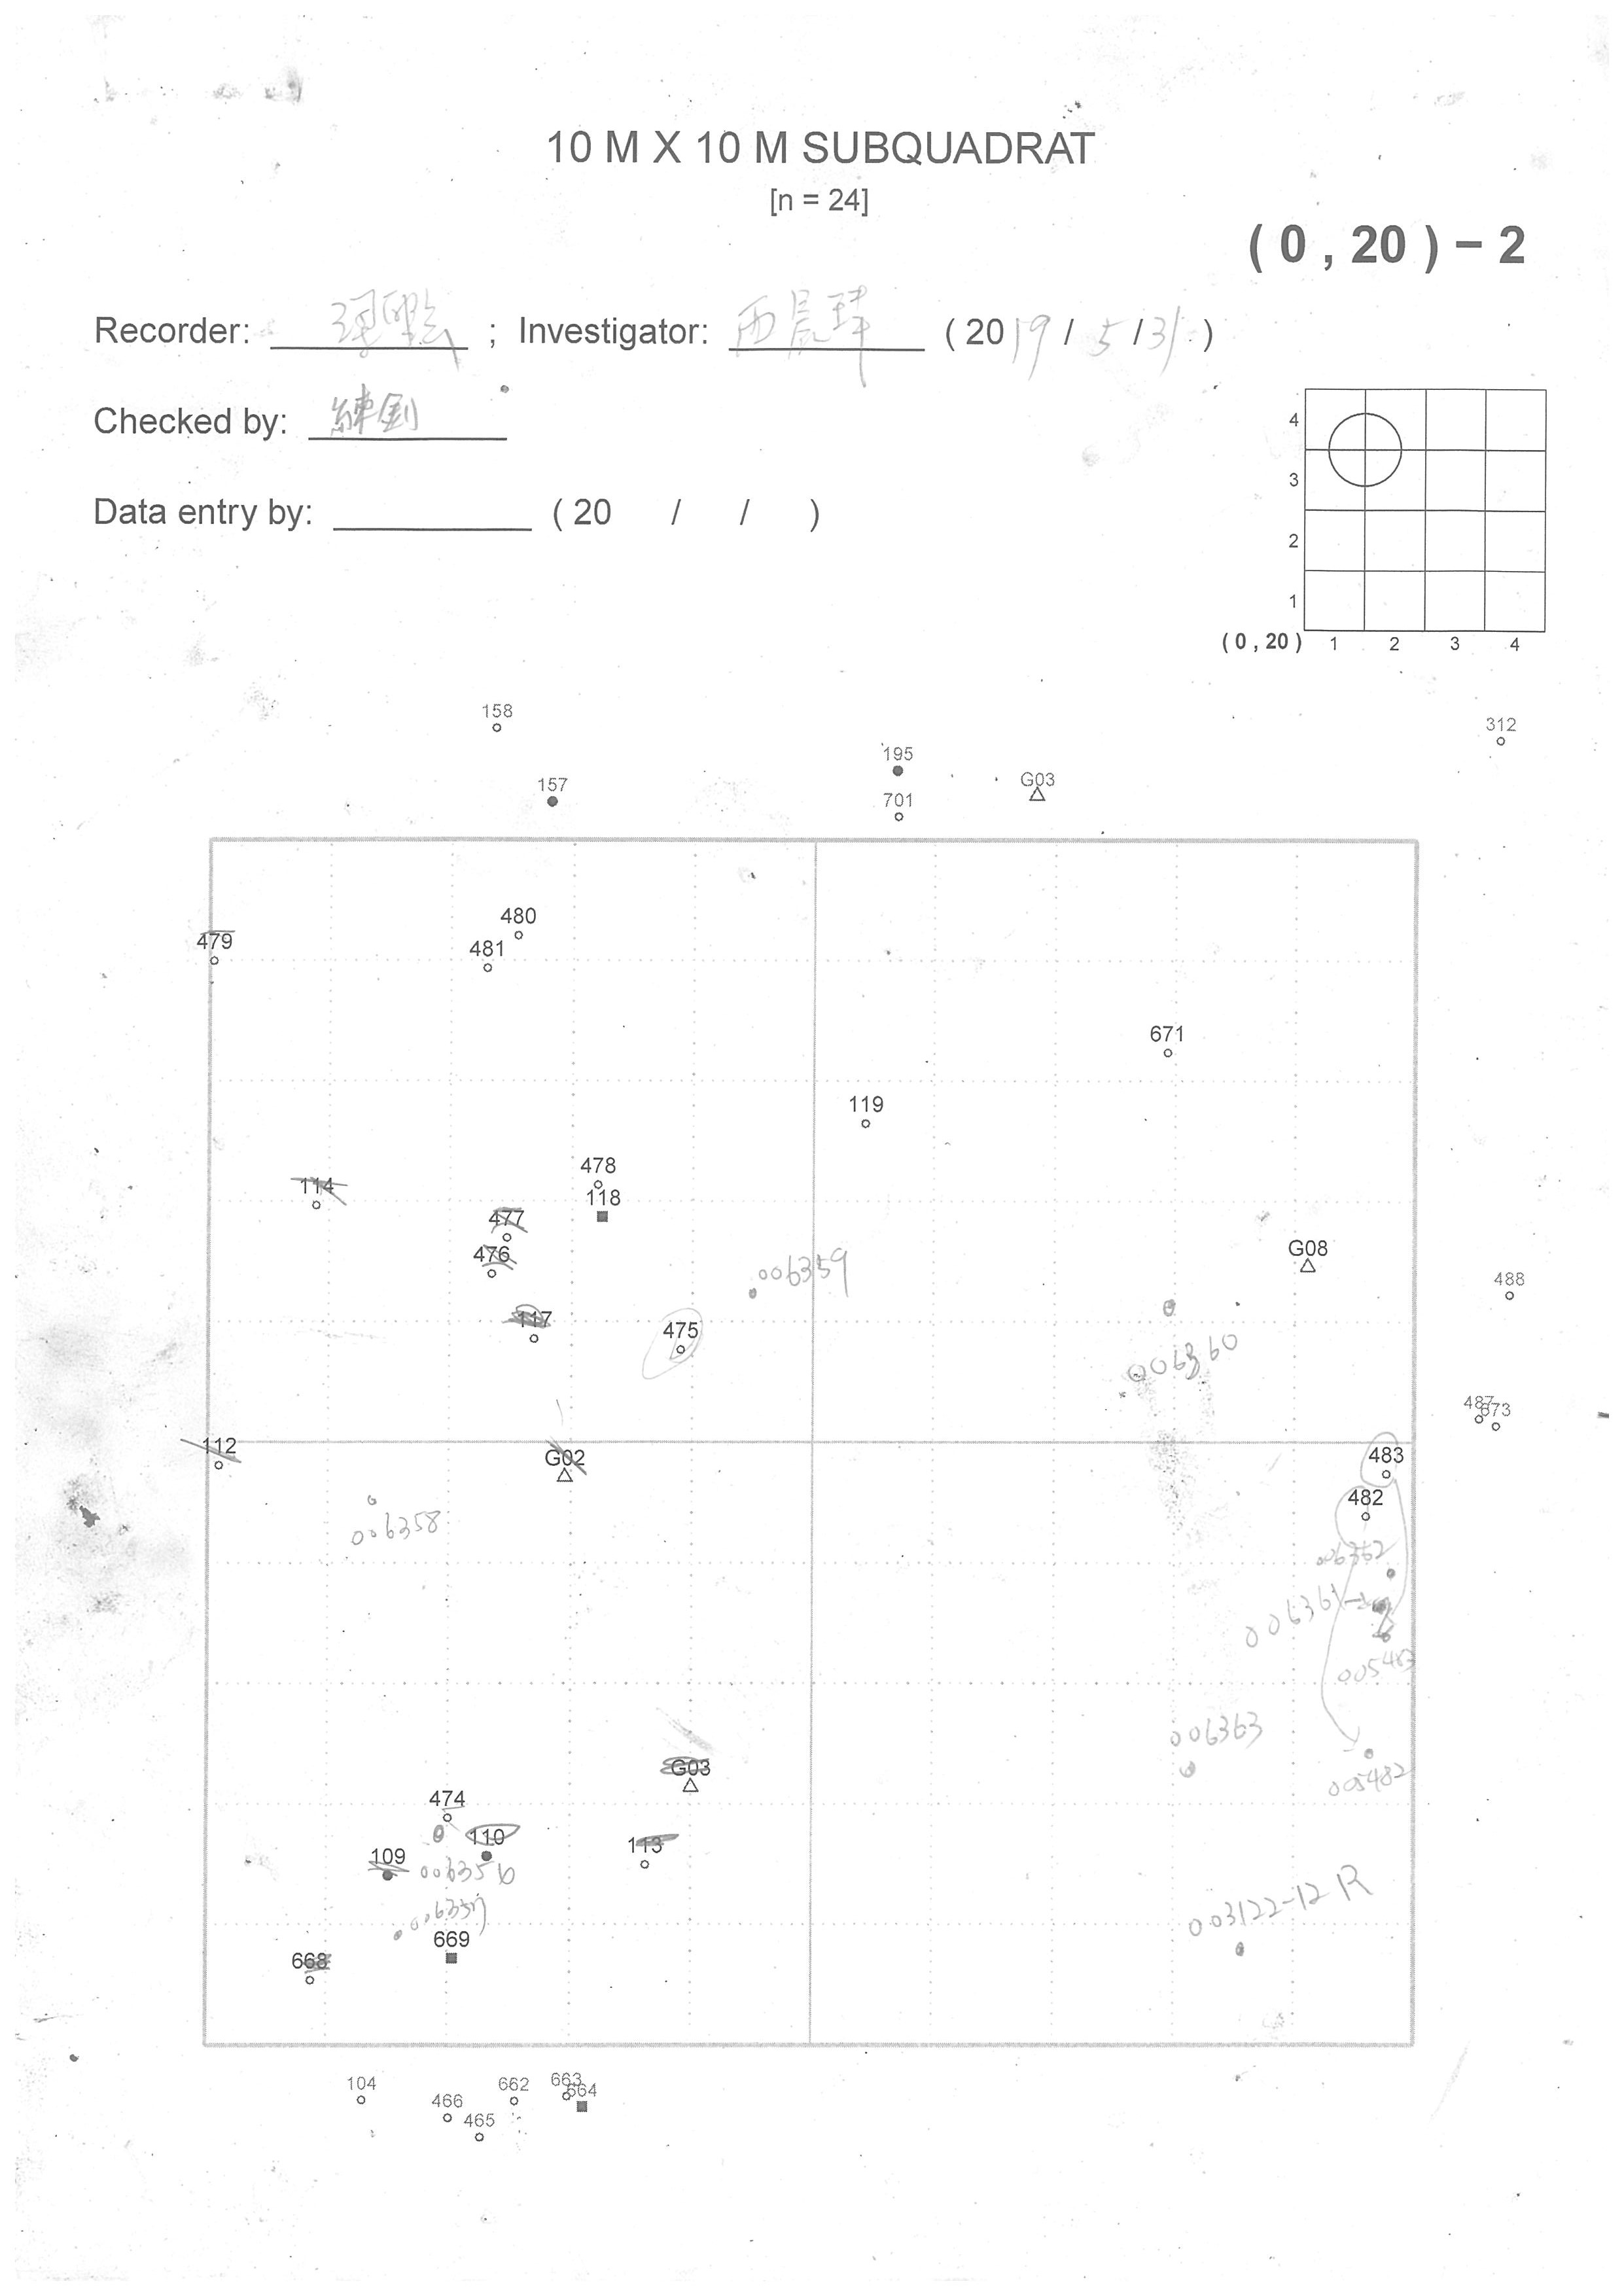 10 M X 10 M SUBQUADRAT
[n = 24]
( 0 , 20 ) – 2
Recorder: ; Investigator: ( 2019 / 5 /31 )
Checked by:
Data entry by: ( 20 / / )
4
3
2
1
( 0 , 20 ) 1 2 3 4
158
312
195
157
G03
701
480
479
481
671
119
478
114
118
477
G08
476
006359
488
117
475
006360
487
673
112
G02
483
482
006358
006362
006361
005483
006363
G03
005482
474
110
113
109
006356
003122-12 R
669
668
104
663
662
664
466
465